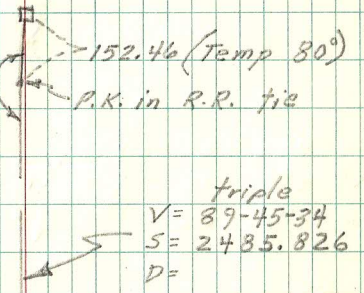 152.46 (Temp 80°)
P.K. in R.R. tie
triple
V= 89-45-34
S= 2485.826
D=